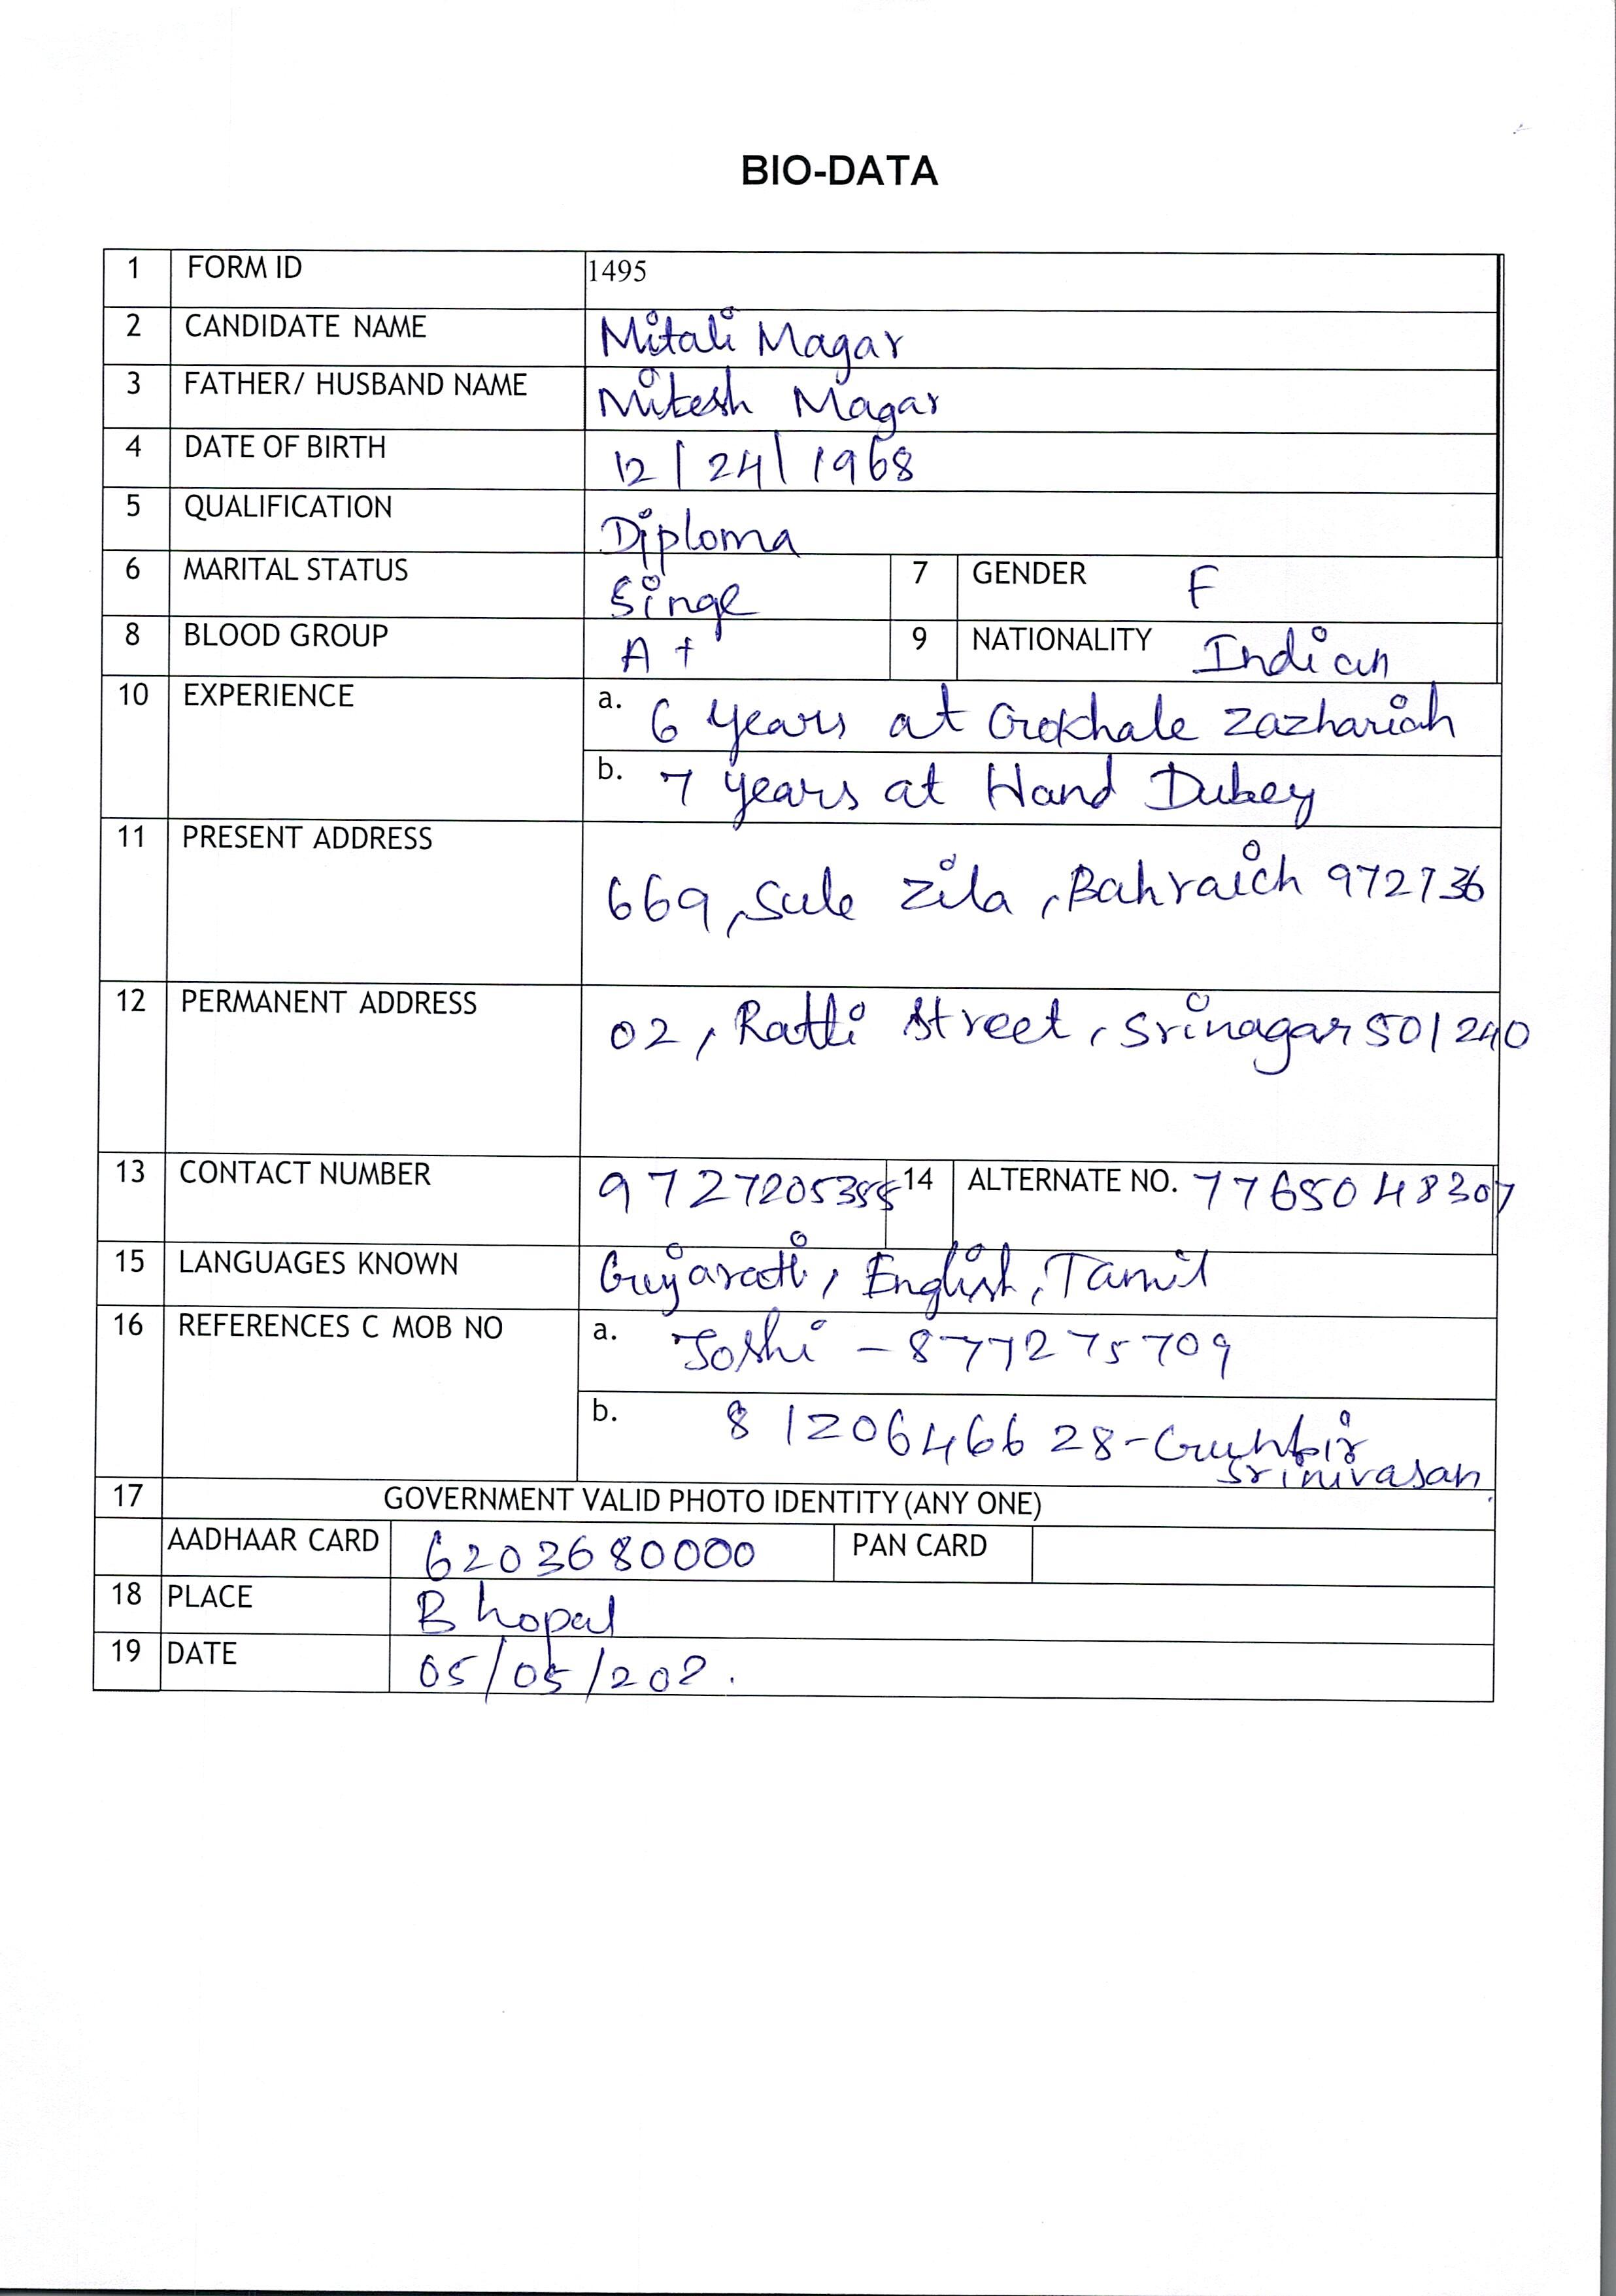 BIO-DATA
1 FORM ID 1495
2 CANDIDATE NAME Mitali Magar
3 FATHER/ HUSBAND NAME Mitesh Magar
4 DATE OF BIRTH 12/24/1968
5 QUALIFICATION Diploma
6 MARITAL STATUS Singe 7 GENDER F
8 BLOOD GROUP A+ 9 NATIONALITY Indian
10 EXPERIENCE a. 6 years at Gokhale Zazhariah
b. 7 years at Hand Dubey
11 PRESENT ADDRESS
669, Sule Zila, Bahraich 972736
12 PERMANENT ADDRESS 02, Ratti Street, Srinagar 501240
13 CONTACT NUMBER 14 ALTERNATE NO. 7765048307
15 LANGUAGES KNOWN Gujarati, English, Tamil
16 REFERENCES C MOB NO a. Joshi - 877275709
b. 8120646628-
Srinivasan
17 GOVERNMENT VALID PHOTO IDENTITY (ANY ONE)
AADHAAR CARD 6203680000 PAN CARD
18 PLACE Bhopal
19 DATE 05/05/202.